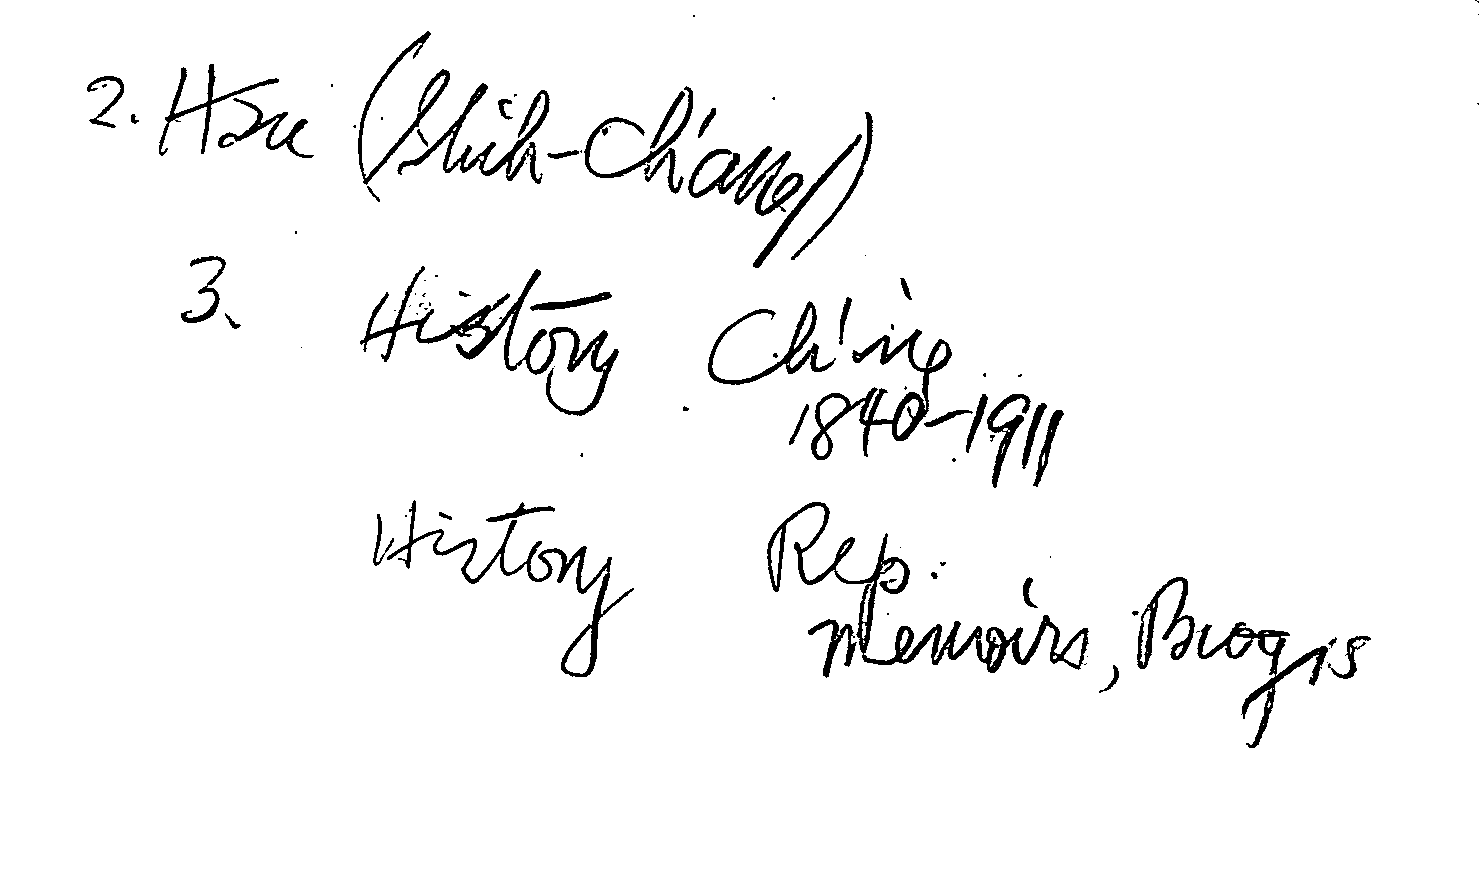 2. Hsu (Shih-Ch'ang)
3. History Ch'ing
1840-1911
History Rep.
Memoirs, Biogrs